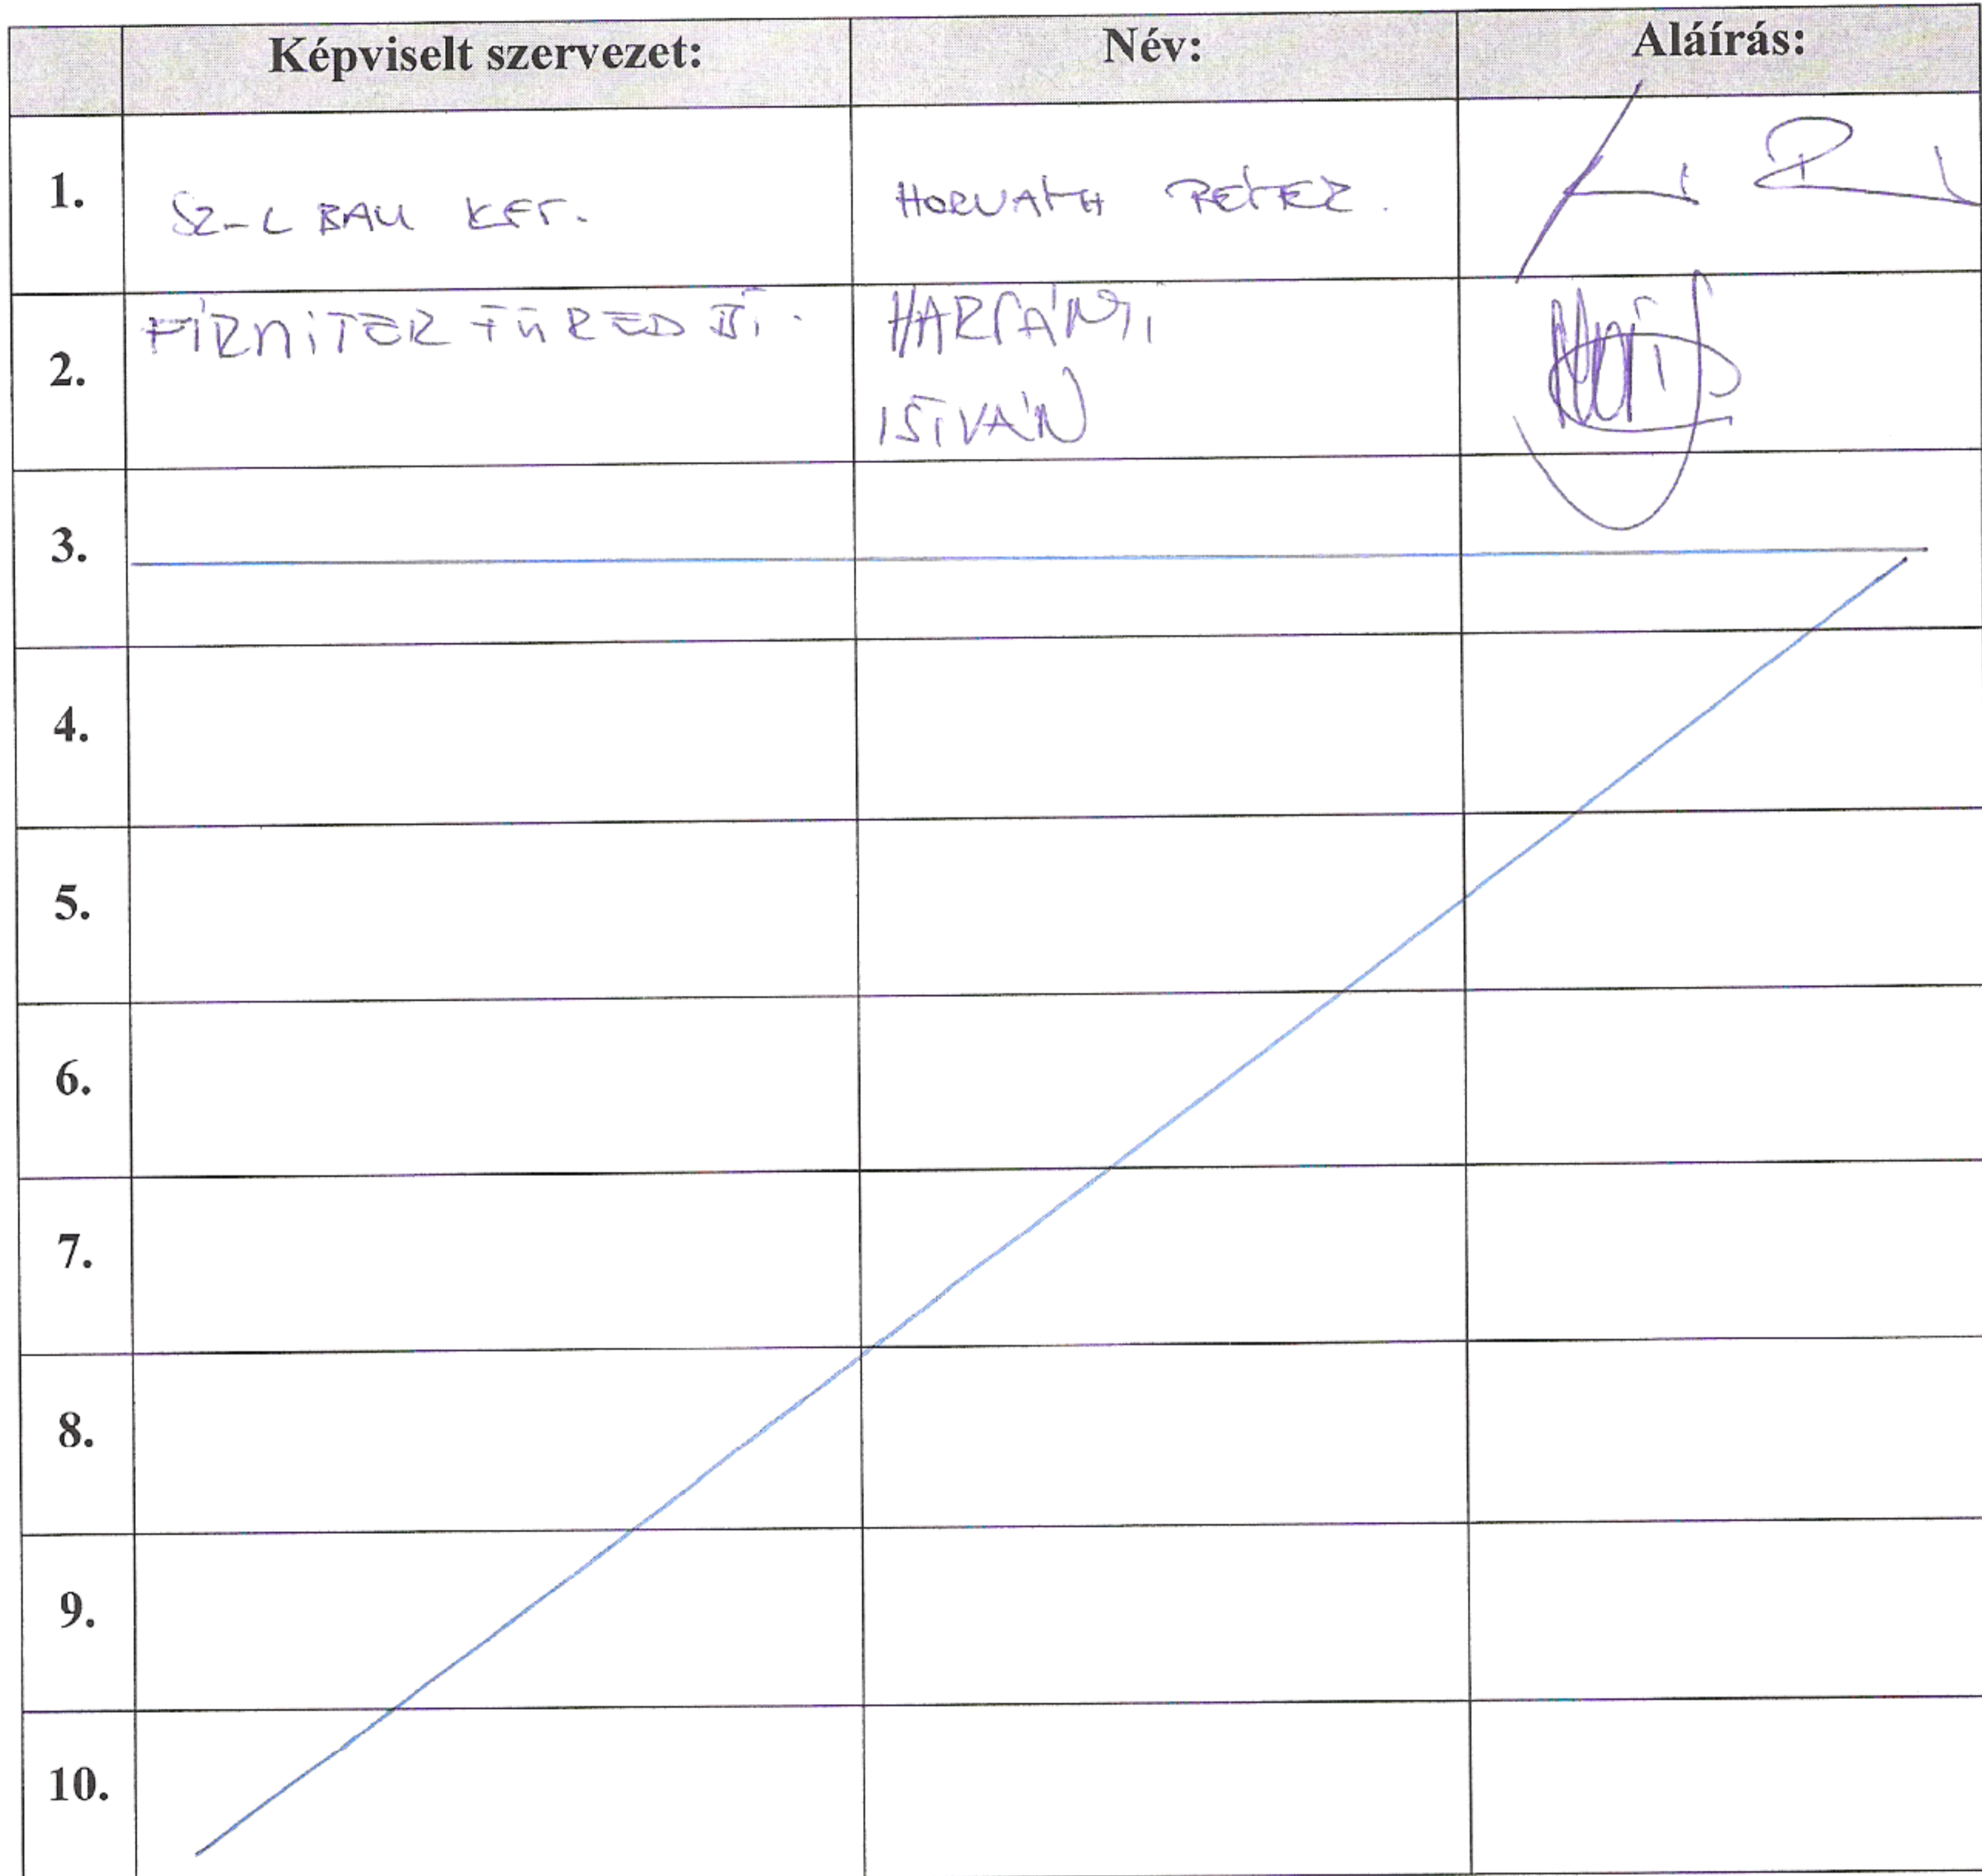 Képviselt szervezet: Név: Aláírás:
1. SZ-L BAU KFT. HORVÁTH PÉTER.
2. FÍRNITER FÜRED BT. HÁRSÁNYI
ISTVÁN
3.
4.
5.
6.
7.
8.
9.
10.